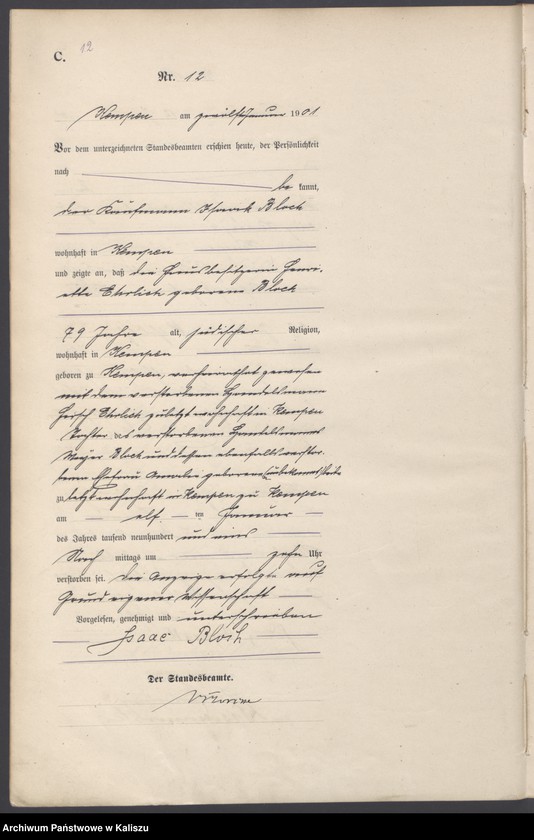 12
C.
Nr. 12
Kempen am zwölften Januar 1901
Vor dem unterzeichneten Standesbeamten erschien heute, der Persönlichkeit
nach be kannt,
der Kaufmann Isaack Bloch
wohnhaft in Kempen
und zeigte an, daß die Hausbesitzerin Henri-
ette Ehrlich geborene Bloch
79 Jahre alt, jüdischer Religion,
wohnhaft in Kempen
geboren zu Kempen, verheirathet gewesen
mit dem verstorbenen Handelsmann
Hersch Ehrlich zuletzt wohnhaft in Kempen
Tochter des verstorbenen Handelsmanns
Meyer Bloch und dessen ebenfalls verstor-
benen Ehefrau Amalie geborene (unbekannt) Beide
zuletzt wohnhaft in Kempen zu Kempen
am elf ten Januar
des Jahres tausend neunhundert und eins
Nach mittags um zehn Uhr
verstorben sei. Die Anzeige erfolgte auf
Grund eigener Wissenschaft
Vorgelesen, genehmigt und unterschrieben
Isaac Bloch
Der Standesbeamte.
Archiwum Państwowe w Kaliszu